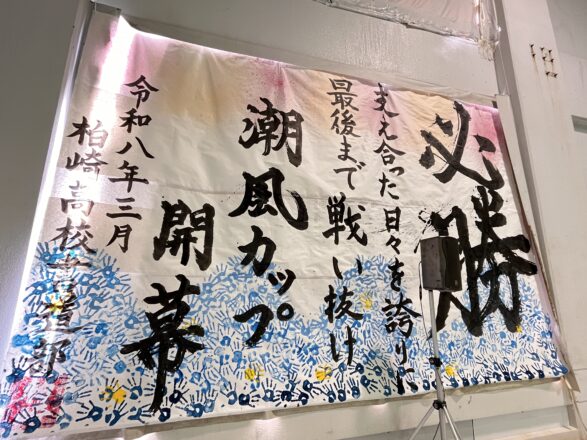 必勝
支え合った日々を誇りに
最後まで戦い抜け
潮風カップ
開幕
令和八年三月
柏崎高校書道部